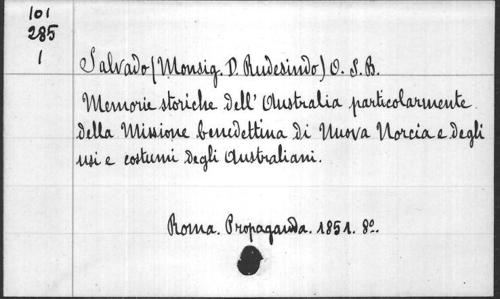 101
285
1
Salvado (Monsig. D. Rudesindo) O. S. B.
Memorie storiche dell' Australia particolarmente
della Missione benedettina di Nuova Norcia e degli
usi e costumi degli Australiani.
Roma. Propaganda. 1851. 8º.